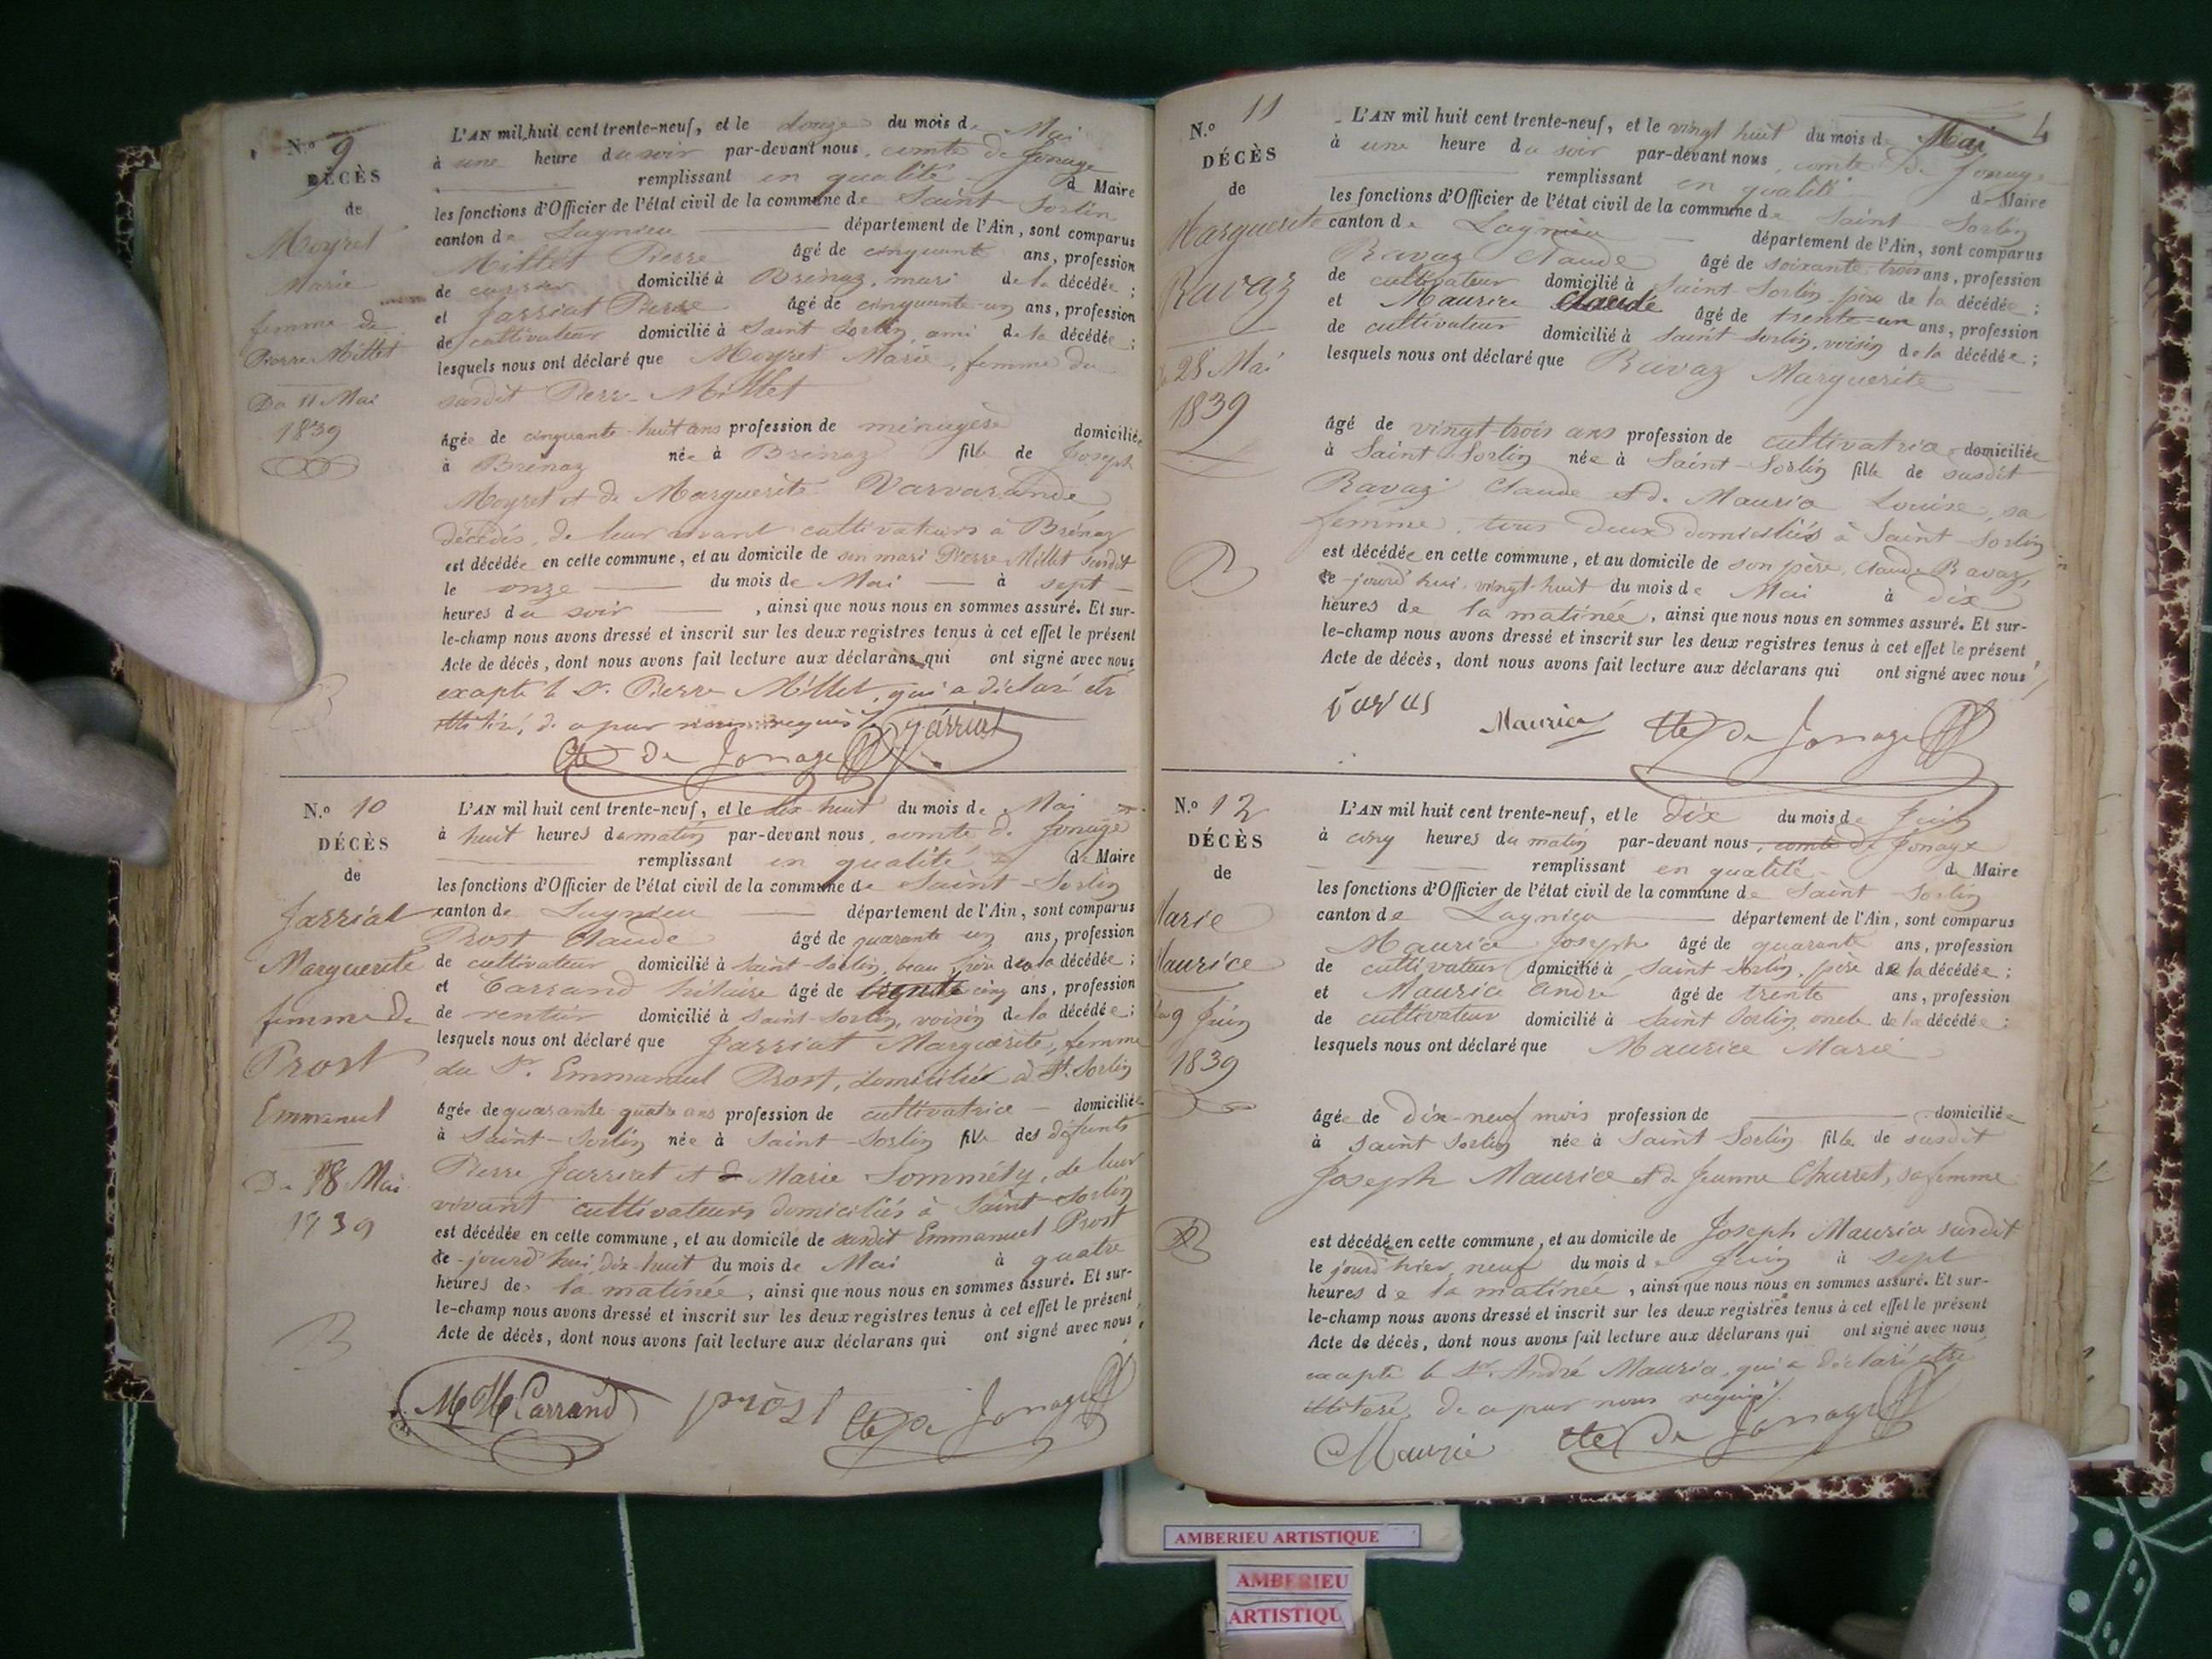 N.º 9
DÉCÈS
de
Moyret
Marie
femme de
Pierre Millet
Du 11 Mai
1839
L'AN mil huit cent trente-neuf, et le douze du mois de Mai
à une heure du soir par-devant nous, comte de Jonage
remplissant en qualité de Maire
les fonctions d'Officier de l'état civil de la commune de Saint Sorlin
canton de Lagnieu département de l'Ain, sont comparus
Millet Pierre âgé de cinquante ans, profession
de domicilié à Brénaz, mari de la décédée ;
et Jarriat Pierre âgé de cinquante-un ans, profession
de cultivateur domicilié à Saint Sorlin, ami de la décédée ;
lesquels nous ont déclaré que Moyret Marie, femme du
susdit Pierre Millet
âgée de cinquante-huit ans profession de ménagère domiciliée
à Brénaz née à Brénaz fille de Joseph
Moyret et de Marguerite Varvarande
décédés, de leur vivant cultivateurs à Brénaz
est décédée en cette commune, et au domicile de son mari Pierre Millet susdit
le onze du mois de Mai à sept
heures du soir, ainsi que nous nous en sommes assuré. Et sur-
le-champ nous avons dressé et inscrit sur les deux registres tenus à cet effet le présent
Acte de décès, dont nous avons fait lecture aux déclarans qui ont signé avec nous,
excepté le Sr. Pierre Millet, qui a déclaré être
illitéré, de ce par nous requis
Cte De Jonage Jarriat
N.º 10
DÉCÈS
de
Jarriat
Marguerite
femme de
Prost
Emmanuel
Du 18 Mai
1839
L'AN mil huit cent trente-neuf, et le dix-huit du mois de Mai
à huit heures du matin par-devant nous, comte de Jonage
remplissant en qualité de Maire
les fonctions d'Officier de l'état civil de la commune de Saint-Sorlin
canton de Lagnieu département de l'Ain, sont comparus
Prost Claude âgé de quarante un ans, profession
de cultivateur domicilié à Saint-Sorlin, beau frère de la décédée ;
et Carrand hilaire âgé de trente cinq ans, profession
de rentier domicilié à Saint-Sorlin, voisin de la décédée ;
lesquels nous ont déclaré que Jarriat Marguerite, femme
du Sr. Emmanuel Prost, domiciliée à St. Sorlin
âgée de quarante-quatre ans profession de cultivatrice domiciliée
à Saint-Sorlin née à Saint-Sorlin fille des défunts
Pierre Jarriat et de Marie Sométy, de leur
vivant cultivateurs domiciliés à Saint-Sorlin
est décédée en cette commune, et au domicile de susdit Emmanuel Prost
ce-jourd'hui, dix-huit du mois de Mai à quatre
heures de la matinée, ainsi que nous nous en sommes assuré. Et sur-
le-champ nous avons dressé et inscrit sur les deux registres tenus à cet effet le présent
Acte de décès, dont nous avons fait lecture aux déclarans qui ont signé avec nous.
M H Carrand prost Cte De Jonage
4
N.º 11
DÉCÈS
de
Marguerite
Ravaz
28 Mai
1839
L'AN mil huit cent trente-neuf, et le vingt huit du mois de Mai
à une heure du soir par-devant nous, comte De Jonage
remplissant en qualité de Maire
les fonctions d'Officier de l'état civil de la commune de Saint Sorlin
canton de Lagnieu département de l'Ain, sont comparus
Ravaz Claude âgé de soixante-trois ans, profession
de cultivateur domicilié à Saint-Sorlin, père de la décédée ;
et Maurice Claude âgé de trente-un ans, profession
de cultivateur domicilié à Saint Sorlin, voisin de la décédée ;
lesquels nous ont déclaré que Ravaz Marguerite
âgé de vingt-trois ans profession de cultivatrice domiciliée
à Saint-Sorlin née à Saint-Sorlin fille de susdit
Ravaz Claude et de Maurice Louise, sa
femme, tous deux domiciliés à Saint-Sorlin
est décédée en cette commune, et au domicile de son père, Claude Ravaz,
ce-jourd'hui, vingt-huit du mois de Mai à dix
heures de la matinée, ainsi que nous nous en sommes assuré. Et sur-
le-champ nous avons dressé et inscrit sur les deux registres tenus à cet effet le présent
Acte de décès, dont nous avons fait lecture aux déclarans qui ont signé avec nous
Maurice Cte De Jonage
N.º 12
DÉCÈS
de
Marie
Maurice
Du 9 Juin
1839
L'AN mil huit cent trente-neuf, et le dix du mois de Juin
à cinq heures du matin par-devant nous, comte de Jonage
remplissant en qualité de Maire
les fonctions d'Officier de l'état civil de la commune de Saint-Sorlin
canton de Lagnieu département de l'Ain, sont comparus
Maurice Joseph âgé de quarante ans, profession
de cultivateur domicilié à Saint Sorlin, père de la décédée ;
et Maurice André âgé de trente ans, profession
de cultivateur domicilié à Saint Sorlin, oncle de la décédée ;
lesquels nous ont déclaré que Maurice Marie
âgée de dix-neuf mois profession de domiciliée
à Saint Sorlin née à Saint Sorlin fille de susdit
Joseph Maurice et de Jeanne Charret, sa femme
est décédée en cette commune, et au domicile de Joseph Maurice susdit
le jourd'hier, neuf du mois de Juin à sept
heures de la matinée, ainsi que nous nous en sommes assuré. Et sur-
le-champ nous avons dressé et inscrit sur les deux registres tenus à cet effet le présent
Acte de décès, dont nous avons fait lecture aux déclarans qui ont signé avec nous
excepté le Sr. André Maurice, qui a déclaré être
illitéré, de ce par nous requis
Maurice Cte De Jonage
AMBERIEU ARTISTIQUE
AMBERIEU
ARTISTIQU